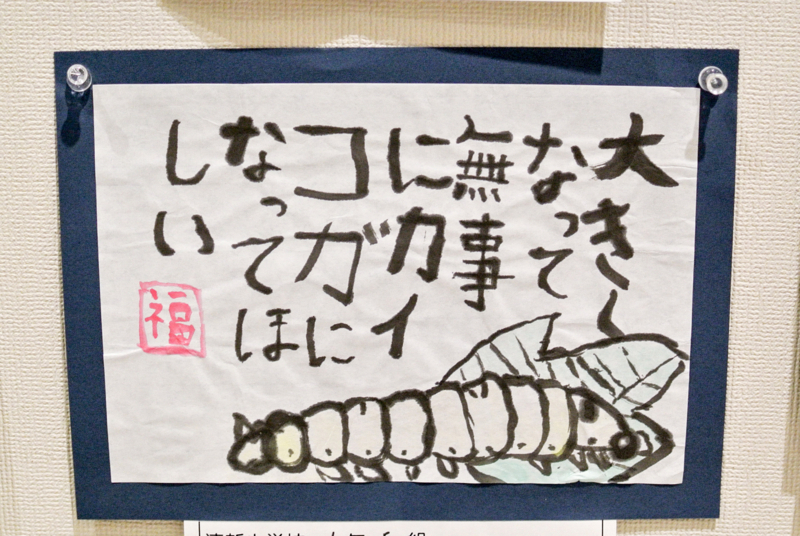 大きく
なって
無事
にカイ
コガに
なってほ
しい
福